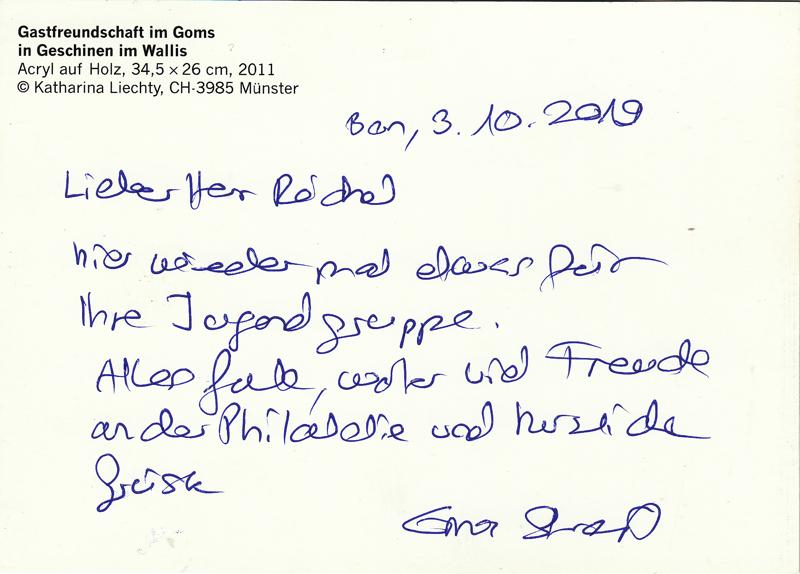 Gastfreundschaft im Goms
in Geschinen im Wallis
Acryl auf Holz, 34,5 × 26 cm, 2011
© Katharina Liechty, CH-3985 Münster
3.10.2019
Lieber Herr
hier wieder mal etwas für
Ihre Jugendgruppe.
Alles Gute, weiter viel Freude
an der Philatelie und herzliche
Grüsse